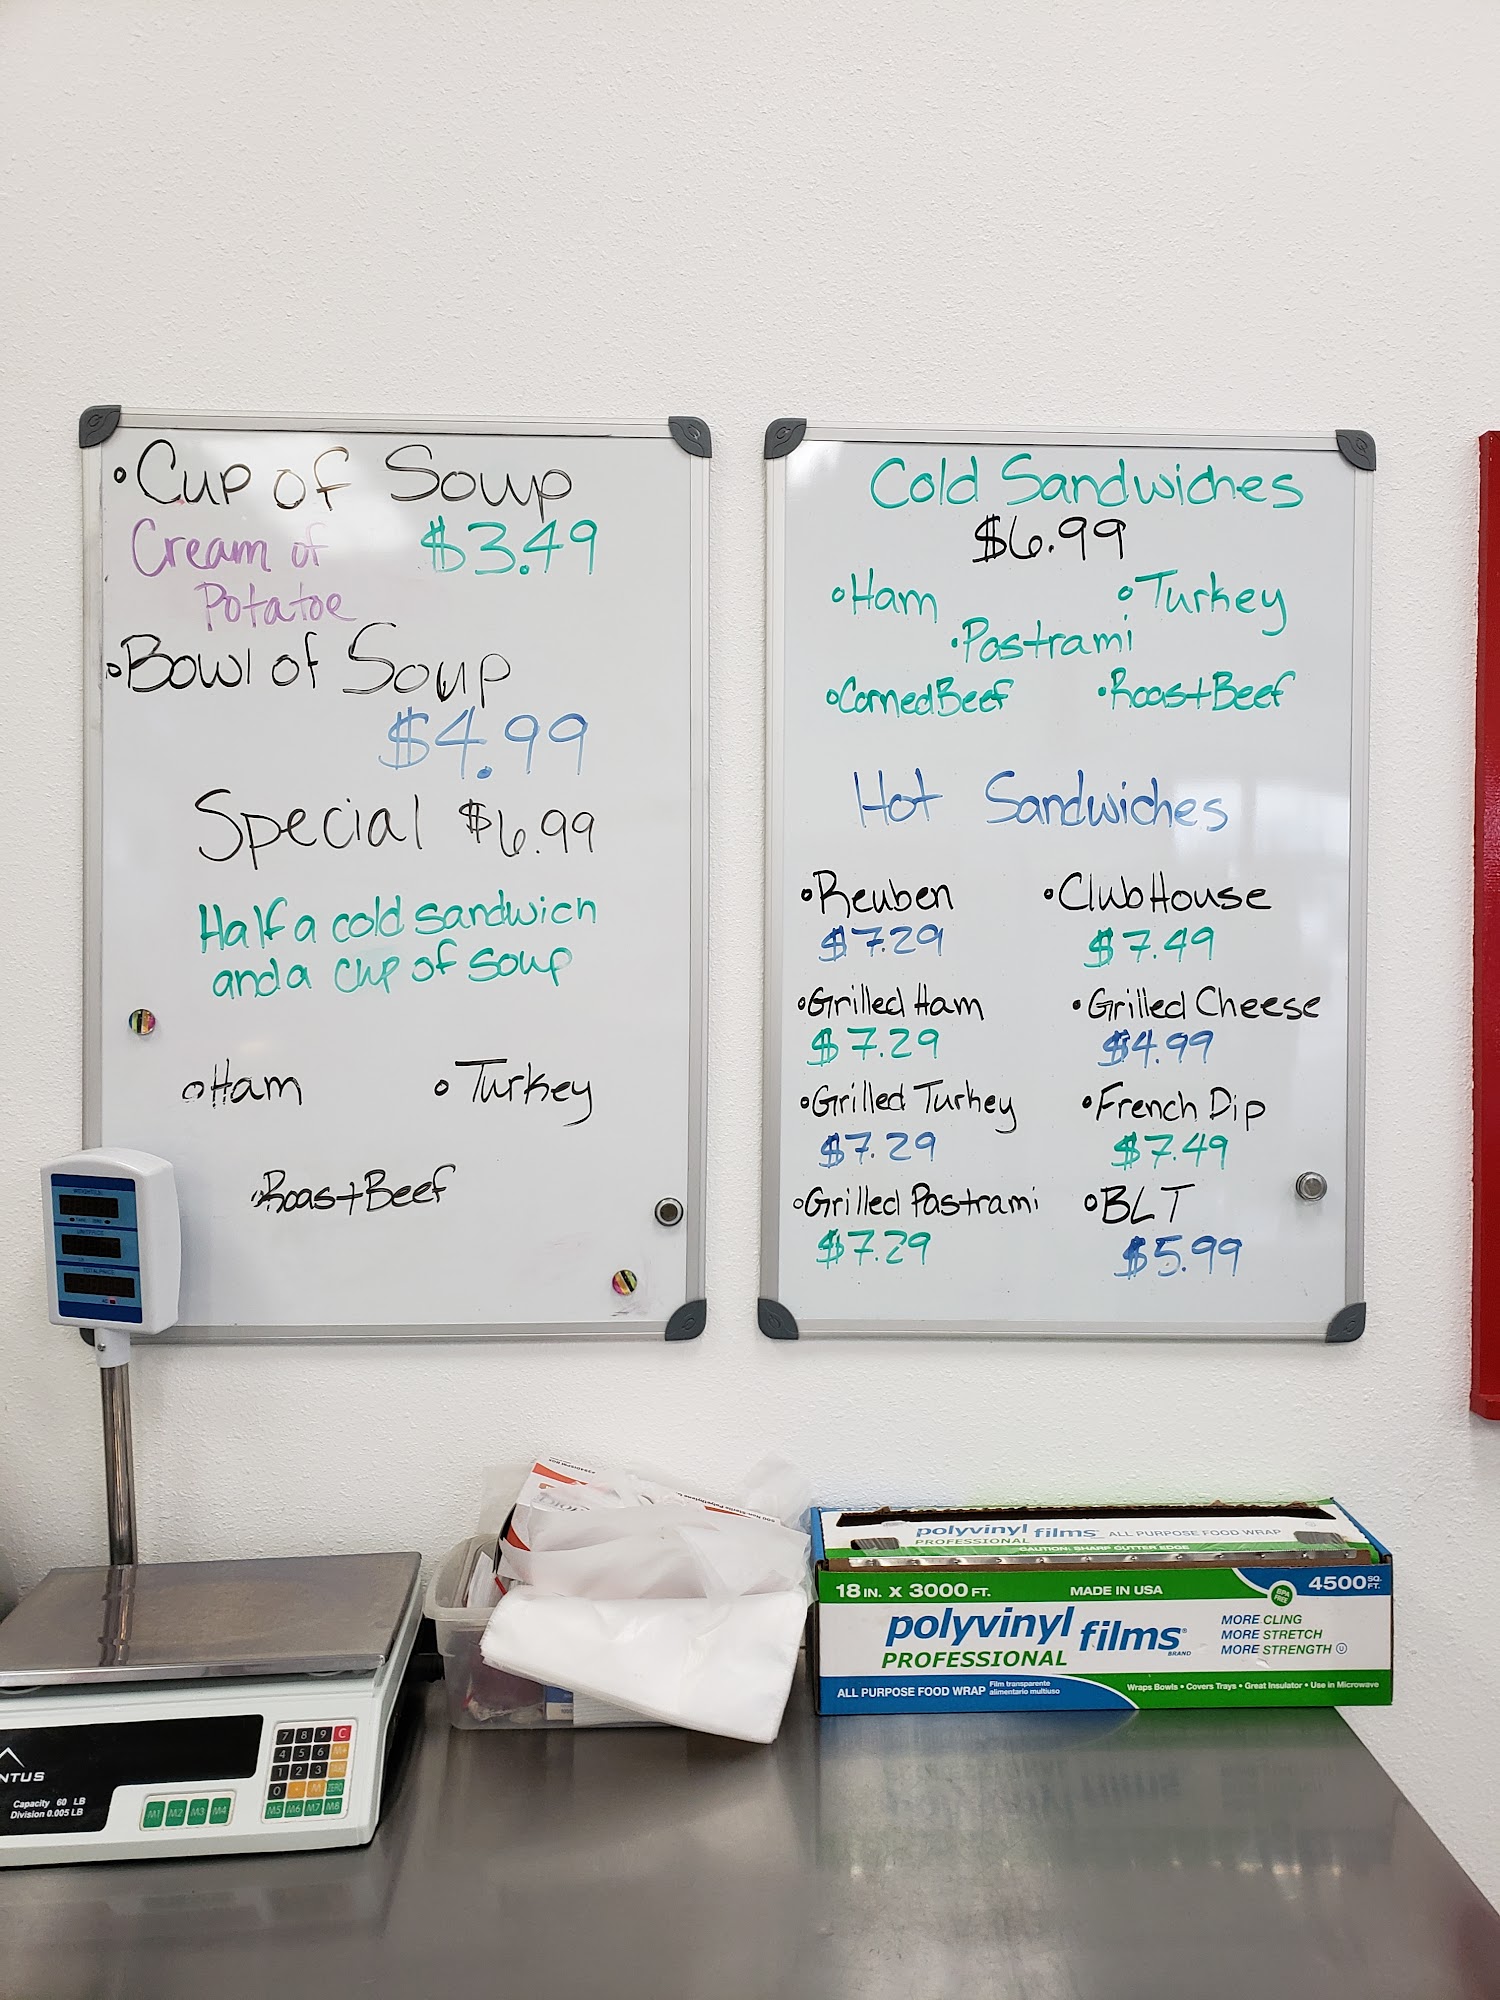 •Cup of Soup
Cream of $3.49
Potatoe
•Bowl of Soup
$4.99
Special $6.99
Half a cold sandwich
and a cup of soup
•Ham •Turkey
•Roast Beef
Cold Sandwiches
$6.99
•Ham •Turkey
•Pastrami
•Corned Beef •Roast Beef
Hot Sandwiches
•Reuben •Club House
$7.29 $7.49
•Grilled Ham •Grilled Cheese
$7.29 $4.99
•Grilled Turkey •French Dip
$7.29 $7.49
•Grilled Pastrami •BLT
$7.29 $5.99
polyvinyl films ALL PURPOSE FOOD WRAP
PROFESSIONAL
CAUTION: SHARP CUTTER EDGE
18 IN. X 3000 FT. MADE IN USA BPA FREE 4500 SQ. FT.
polyvinyl films®
BRAND
PROFESSIONAL
MORE CLING
MORE STRETCH
MORE STRENGTH
ALL PURPOSE FOOD WRAP Film transparente
alimentario multiuso
Wraps Bowls • Covers Trays • Great Insulator • Use in Microwave
NTUS
Capacity 60 LB
Division 0.005 LB
7 8 9 C
4 5 6 M+
1 2 3
0 . M ZERO
M1 M2 M3 M4 M5 M6 M7 M8